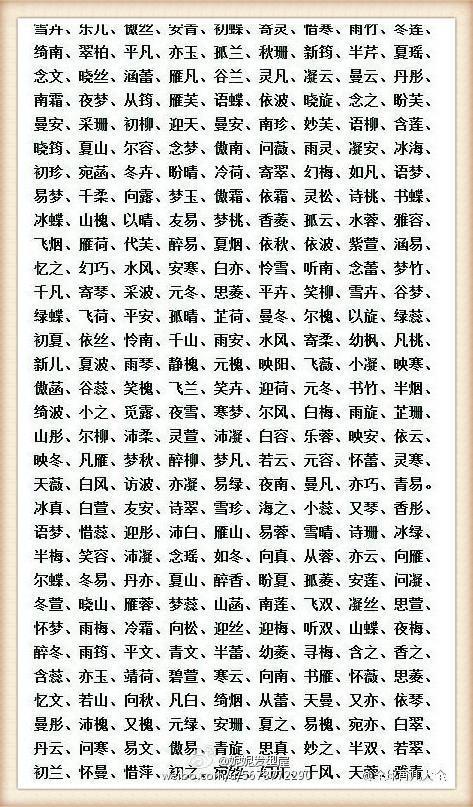 雪卉、乐儿、傲丝、安青、初蝶、寄灵、惜寒、雨竹、冬莲、
绮南、翠柏、平凡、亦玉、孤兰、秋珊、新筠、半芹、夏瑶、
念文、晓丝、涵蕾、雁凡、谷兰、灵凡、凝云、曼云、丹彤、
南霜、夜梦、从筠、雁芙、语蝶、依波、晓旋、念之、盼芙、
曼安、采珊、初柳、迎天、曼安、南珍、妙芙、语柳、含莲、
晓筠、夏山、尔容、念梦、傲南、问薇、雨灵、凝安、冰海、
初珍、宛菡、冬卉、盼晴、冷荷、寄翠、幻梅、如凡、语梦、
易梦、千柔、向露、梦玉、傲霜、依霜、灵松、诗桃、书蝶、
冰蝶、山槐、以晴、友易、梦桃、香菱、孤云、水蓉、雅容、
飞烟、雁荷、代芙、醉易、夏烟、依秋、依波、紫萱、涵易、
忆之、幻巧、水风、安寒、白亦、怜雪、听南、念蕾、梦竹、
千凡、寄琴、采波、元冬、思菱、平卉、笑柳、雪卉、谷梦、
绿蝶、飞荷、平安、孤晴、芷荷、曼冬、尔槐、以旋、绿蕊、
初夏、依丝、怜南、千山、雨安、水风、寄柔、幼枫、凡桃、
新儿、夏波、雨琴、静槐、元槐、映阳、飞薇、小凝、映寒、
傲菡、谷蕊、笑槐、飞兰、笑卉、迎荷、元冬、书竹、半烟、
绮波、小之、觅露、夜雪、寒梦、尔风、白梅、雨旋、芷珊、
山彤、尔柳、沛柔、灵萱、沛凝、白容、乐蓉、映安、依云、
映冬、凡雁、梦秋、醉柳、梦凡、若云、元容、怀蕾、灵寒、
天薇、白风、访波、亦凝、易绿、夜南、曼凡、亦巧、青易。
冰真、白萱、友安、诗翠、雪珍、海之、小蕊、又琴、香彤、
语梦、惜蕊、迎彤、沛白、雁山、易蓉、雪晴、诗珊、冰绿、
半梅、笑容、沛凝、念瑶、如冬、向真、从蓉、亦云、向雁、
尔蝶、冬易、丹亦、夏山、醉香、盼夏、孤菱、安莲、问凝、
冬萱、晓山、雁蓉、梦蕊、山菡、南莲、飞双、凝丝、思萱、
怀梦、雨梅、冷霜、向松、迎丝、迎梅、听双、山蝶、夜梅、
醉冬、雨筠、平文、青文、半蕾、幼菱、寻梅、含之、香之、
含蕊、亦玉、靖荷、碧萱、寒云、向南、书雁、怀薇、思菱、
忆文、若山、向秋、凡白、绮烟、从蕾、天曼、又亦、依琴、
曼彤、沛槐、又槐、元绿、安珊、夏之、易槐、宛亦、白翠、
丹云、问寒、易文、傲易、青旋、思真、妙之、半双、若翠、
初兰、怀曼、惜萍、初之、宛丝、幻儿、千风、天蓉、雅青、
@妮妮发型屋